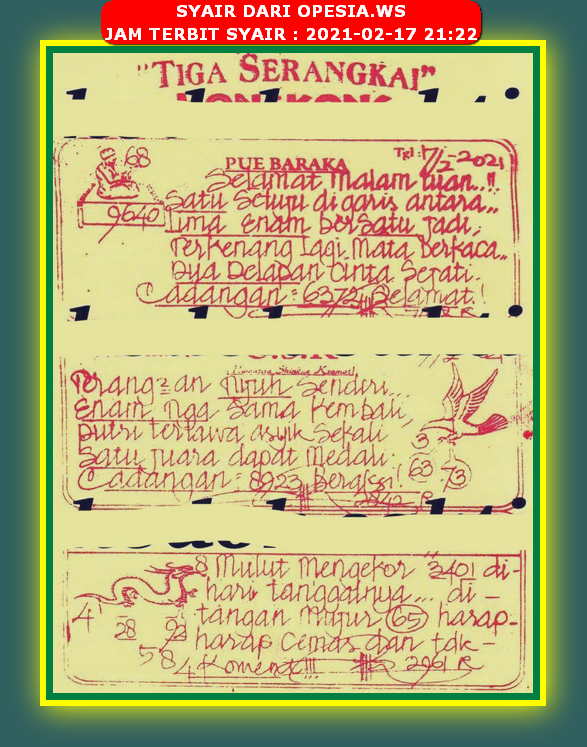 SYAIR DARI OPESIA.WS
JAM TERBIT SYAIR : 2021-02-17 21:22
"TIGA SERANGKAI"
68
PUE BARAKA
Tgl : 17/2-2021
9640
Selamat malam tuan..!!
Satu Setuju di garis antara..
Lima Enam bersatu Jadi,
Terkenang Lagi Mata berkaca..
Dua Delapan Cinta Sejati.
Cadangan : 6372 Selamat.!
Perang an Sendiri...
Enam Tiga Sama Kembali,
Putri tertawa asyik Sekali
Satu Juara dapat Medali.
Cadangan : 8923
3
63
73
8 Mulut Mengekor "2401 di-
hari tanggalnya... di-
4
tangan 65 harap-
28
harap Cemas dan tdk-
584
Koment!!!
2961 R